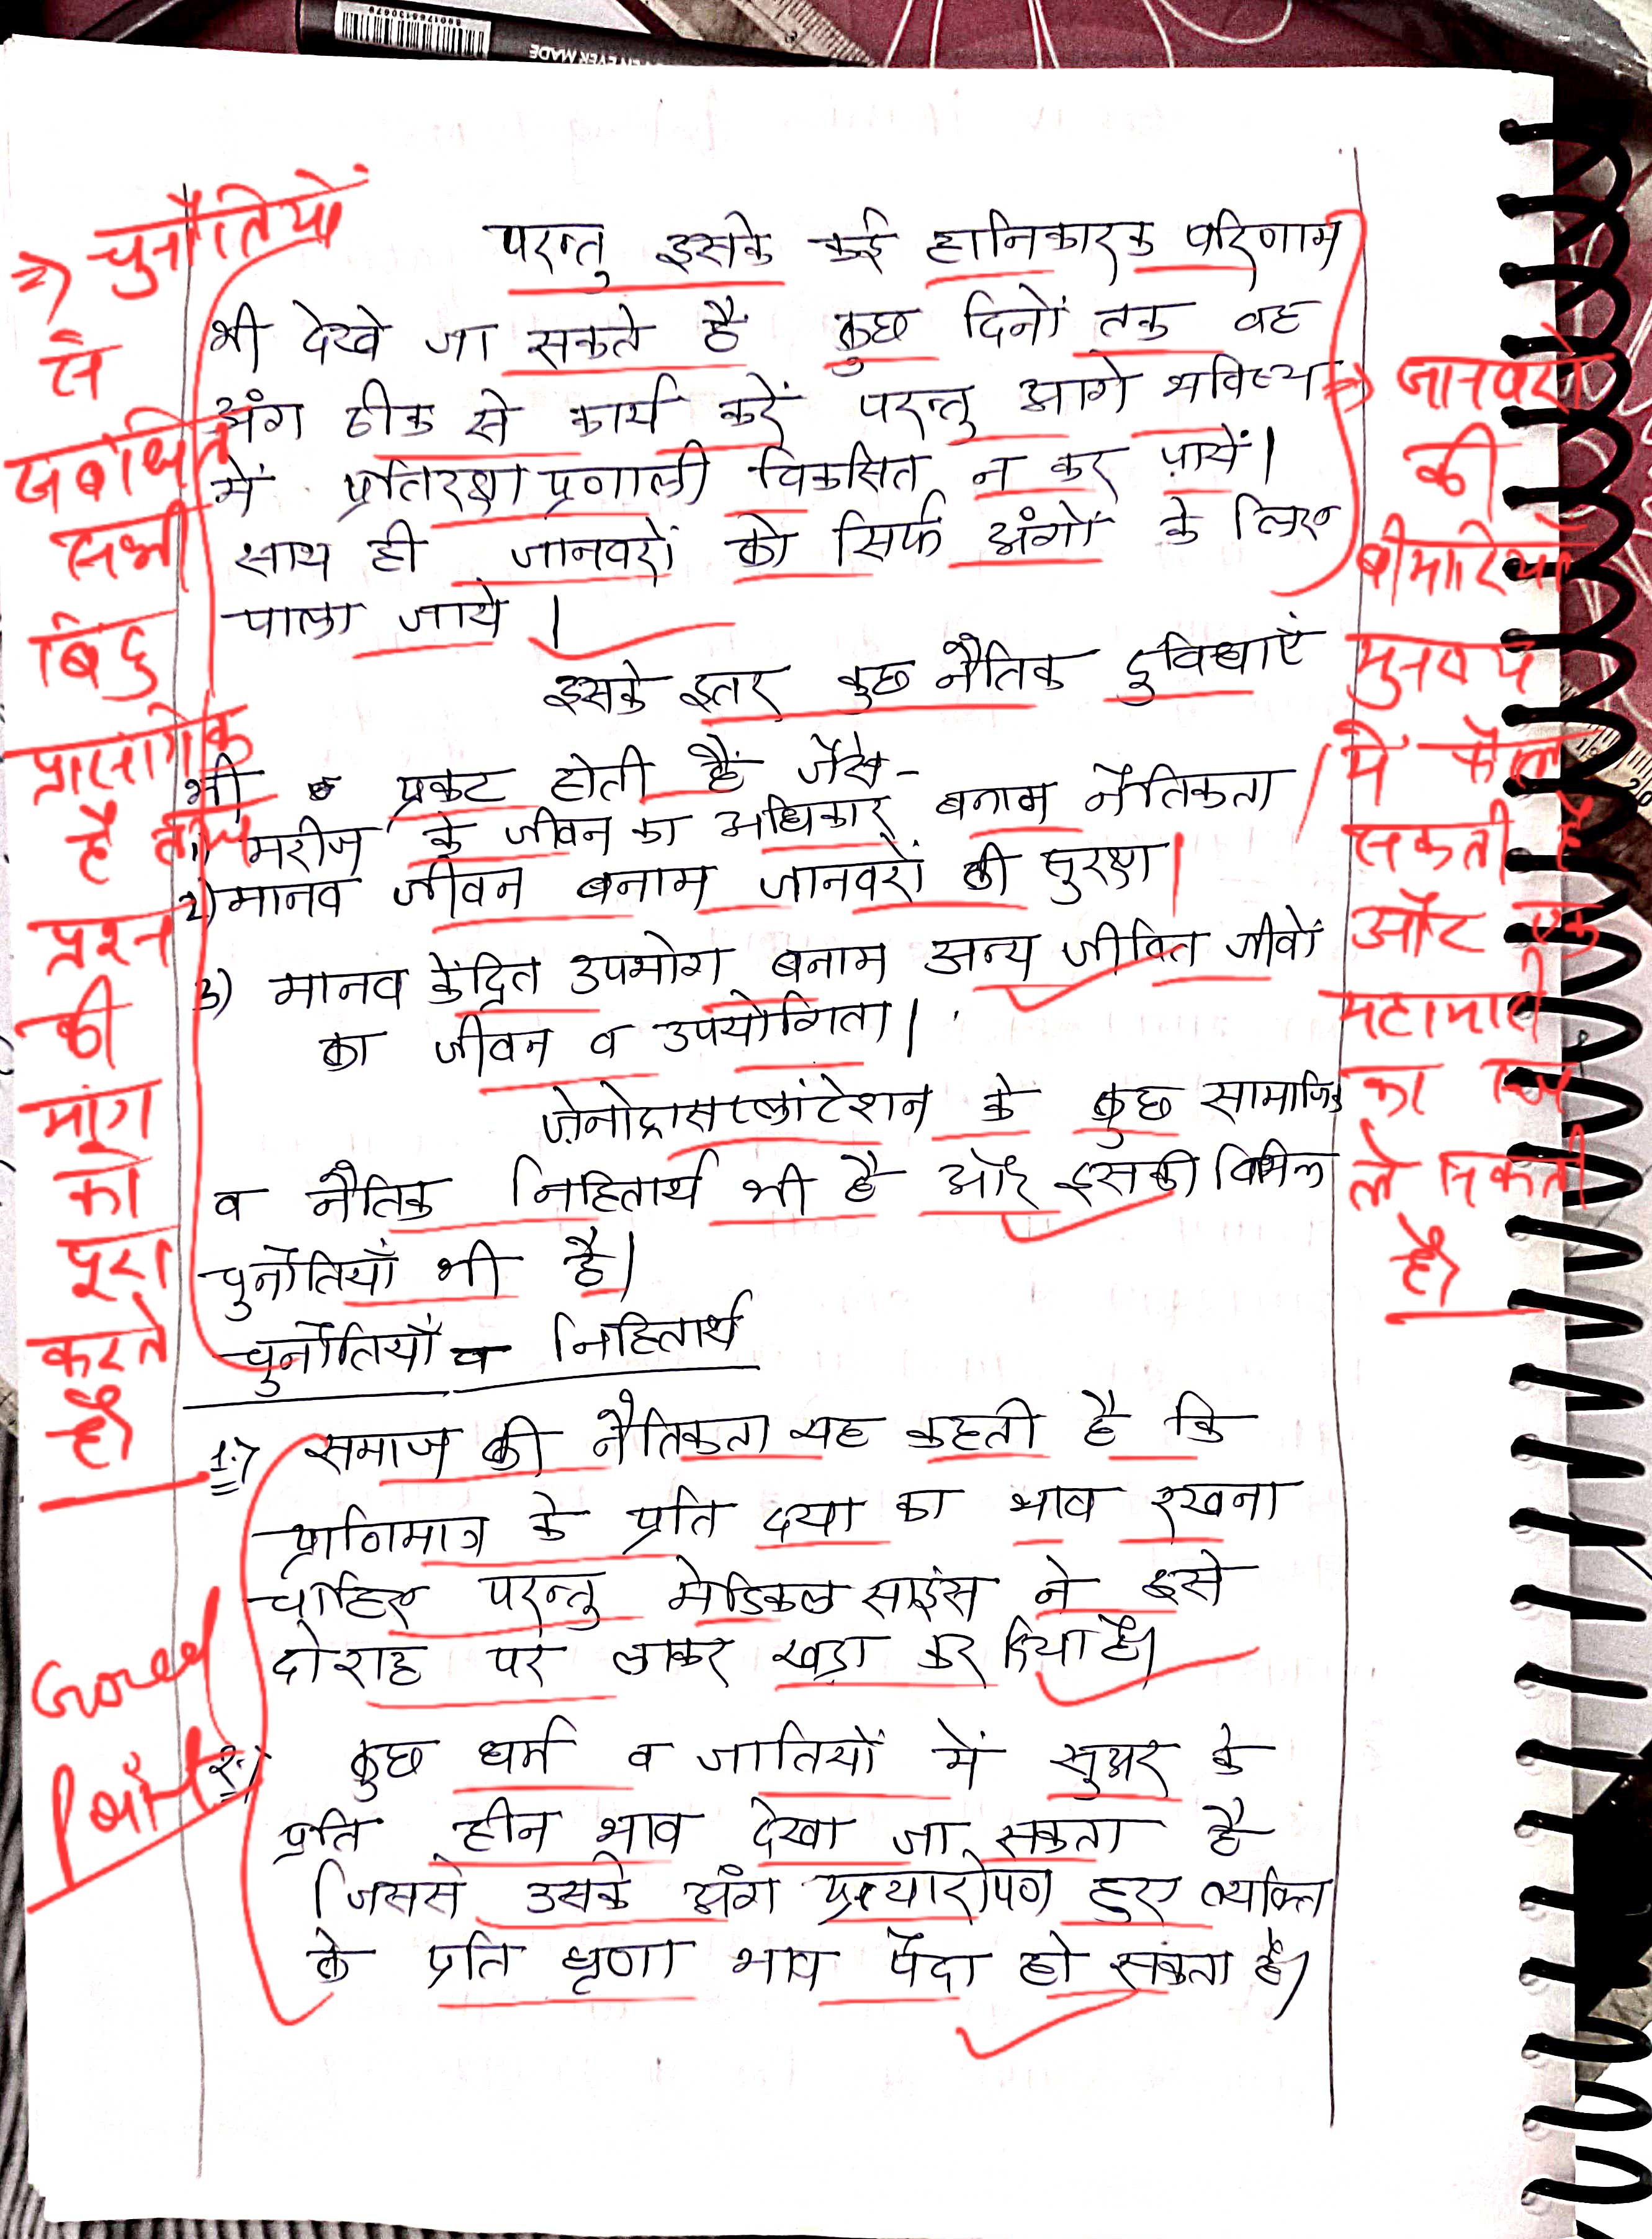 परन्तु इसके कई हानिकारक परिणाम
भी देखे जा सकते है कुछ दिनों तक वह
अंग ठीक से कार्य करें परन्तु आगे भविष्य
में प्रतिरक्षा प्रणाली विकसित न कर पायें।
साथ ही जानवरों को सिर्फ अंगों के लिए
पाला जाये।
इसके इतर कुछ नैतिक दुविधाएं
भी प्रकट होती हैं जैसे-
1) मरीज के जीवन का अधिकार बनाम नैतिकता
2) मानव जीवन बनाम जानवरों की सुरक्षा।
3) मानव केंद्रित उपभोग बनाम अन्य जीवित जीवों
का जीवन व उपयोगिता।
ज़ेनोट्रासप्लांटेशन के कुछ सामाजिक
व नैतिक निहितार्थ भी है और इसकी विभिन्न
चुनौतियाँ भी है।
चुनौतियाँ व निहितार्थ
1.) समाज की नैतिकता यह कहती है कि
प्राणिमात्र के प्रति दया का भाव रखना
चाहिए परन्तु मेडिकल साइंस ने इसे
दोराह पर लाकर खड़ा कर दिया है।
2.) कुछ धर्म व जातियों में सुअर के
प्रति हीन भाव देखा जा सकता है
जिससे उसके अंग प्रत्यारोपण हुए व्यक्ति
के प्रति घृणा भाव पैदा हो सकता है।
=> चुनौतियों
से
संबंधित
सभी
बिंदु
प्रासंगिक
है
प्रश्न
की
मांग
को
पूरा
करते
है।
Good
Point
=> जानवरों
की
बीमारियाँ
मुनष्य
में फैल
सकती है
और एक
महामारी
का रूप
ले सकती
है।